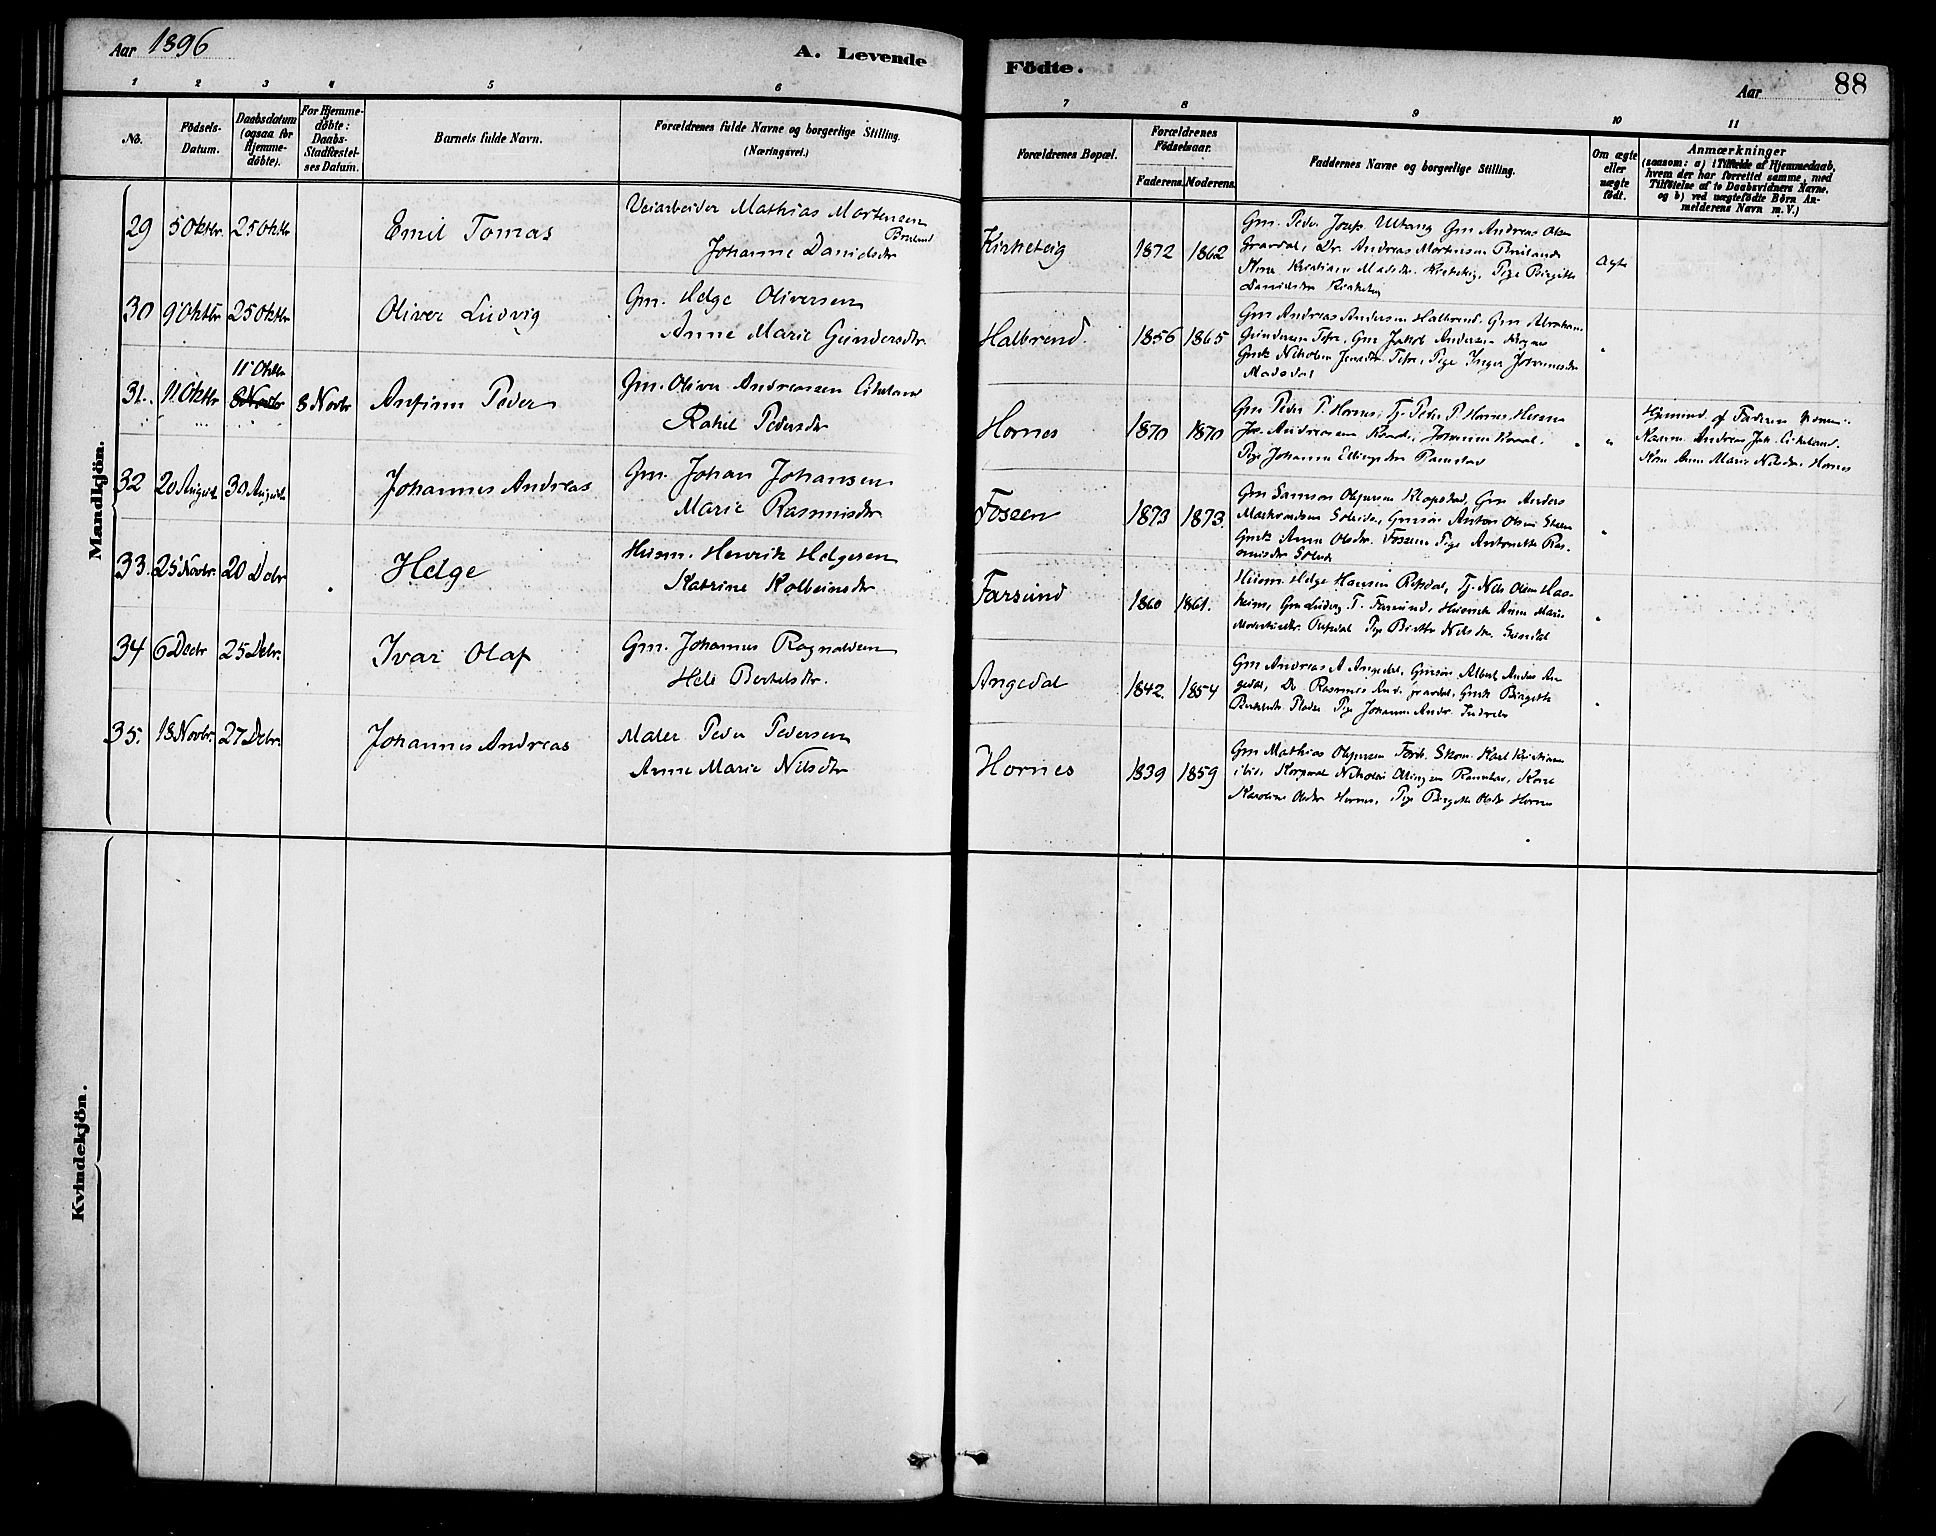 Aar 1896
A. Levende
Födte.
Aar
88
1 2 3 4 5 6 7 8 9 10 11
No.
Födsels-
Datum.
Daabsdatum
(ogsaa for
Hjemme-
döbte).
For Hjemme-
döbte:
Daabs-
Stadfæstel-
ses Datum.
Barnets fulde Navn.
Forældrenes fulde Navne og borgerlige Stilling.
(Næringsvei.)
Forældrenes Bopæl.
Forældrenes
Födselsaar.
Faderens. Moderens.
Faddernes Navne og borgerlige Stilling.
Om ægte
eller
uægte
födt.
Anmærkninger
(saasom: a) i Tilfælde af Hjemmedaab,
hvem der har forrettet samme, med
Tilföielse af to Daabsvidners Navne.
og b) ved uægtefödte Börn An-
melderens Navn m. V.)
Mandkjön.
29 5 Oktbr 25 Oktbr Emil Tomas
Veiarbeider Mathias Mortensen
Bruland
Johanne Danielsdtr
Kirketeig 1872 1862
Gm. Peder Josefs Ullang Gm Andreas Ols
Gravdal, Dr. Andreas Mortensen Bruland
Kone Kristiane Madsdtr. Kirketeig, Pige Birgitte
Danielsdtr Kirketeig
Ægte
30 9 Oktbr 25 Oktbr Oliver Ludvig
Gm. Helge Oliversen
Anne Marie Gundersdtr.
Halbrend. 1856 1865
Gm Andreas Andersen Halbrend. Gm Abraham
Gundersen Tefre, Gm Jakob Andersen
Gmk Nikoline Jensdtr Tefre, Pige Inger Johannesdtr
"
31. 11 Oktbr 11 Oktbr 8 Novbr 8 Novbr Anfinn Peder
Gm. Oliver Andreassen
Rakel Pedersdtr
Hornes 1870 1870
Gm Peder P. Hornes, Tj. Peder P. Hornes
Joh. Andreassen
Pige Johanne Ellingsdtr Ramstad
"
Hjemmed. af Faderen
Andreas Joh.
Kone Anne Marie Nilsdtr. Hornes
32 20 August 30 August Johannes Andreas
Gm. Johan Johansen
Marie Rasmusdtr
Fossen 1873 1873.
Gm Samson Olsen Klopstad, Gm Anders
Solheim, Gmsön Anton Olsen
Gmk Anne Olsdtr. Fossen Pige Antonette Ras-
musdtr
"
33. 25 Novbr. 20 Debr Helge
Husm. Henrik Helgesen
Katrine Kolbeinsdtr
Farsund 1860 1861.
Husm. Helge Hansen, Tj. Nils Olsen Haa-
heim, Gm Ludvig T. Farsund, Husmk Anne Marie
Pige Birthe Nilsdtr.
"
34 6 Decbr 25 Debr. Ivar Olaf
Gm. Johannes Ragnaldsen
Heli Bertelsdtr.
Angedal 1842. 1854
Gm Andreas A Angedal, Gmsön Albert Anders An-
gedal, Do Rasmus And. Gmk Birgitte
Pige Johanne Andr.
"
35. 18 Novbr. 27 Debr. Johannes Andreas
Maler Peder Pedersen
Anne Marie Nilsdtr
Hornes 1839 1859
Gm Mathias Olsen Förde. Skom. Karl Kristians
Korporal Nikolai Ellingsen Ramstad, Kone
Karoline Olsdtr Hornes, Pige Birgitte Olsdtr Hornes
Kvindekjön.